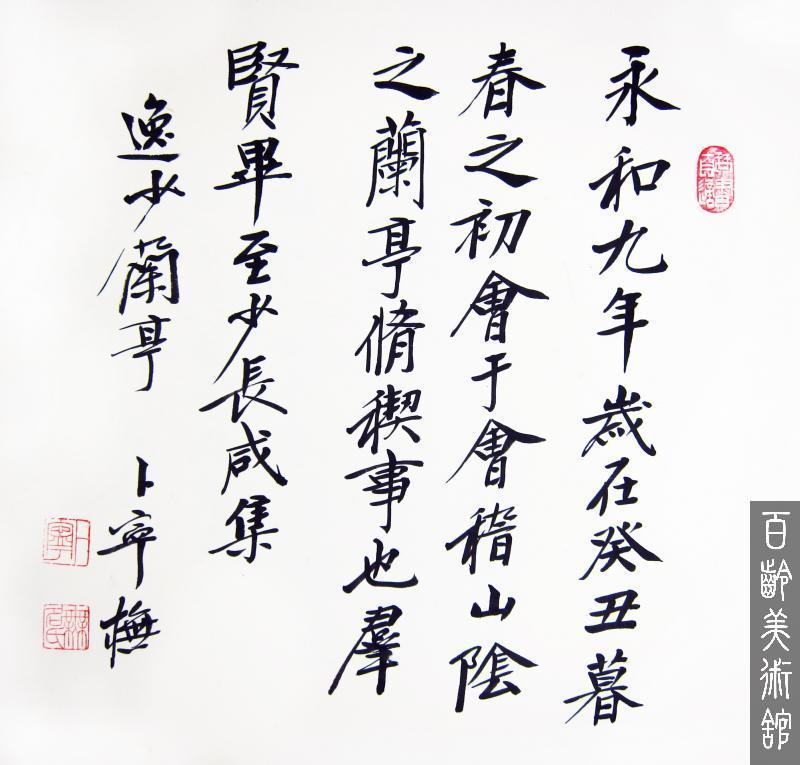 永和九年歲在癸丑暮
春之初會于會稽山陰
之蘭亭脩稧事也羣
賢畢至少長咸集
逸少蘭亭 卜寧橅
百齡美術舘